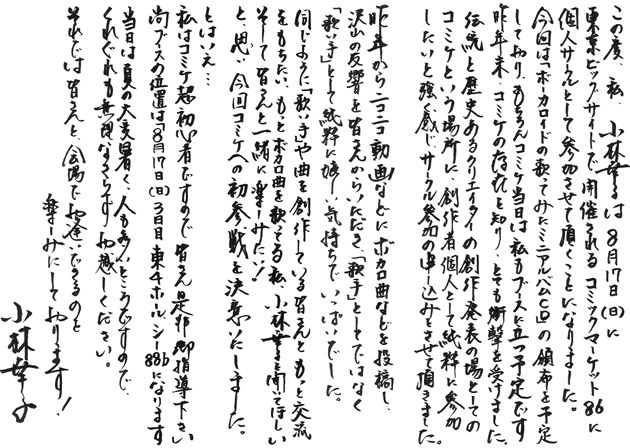 この度、私、小林幸子は8月17日(日)に
東京ビッグサイトで開催されるコミックマーケット86に
個人サークルとして参加させて頂くことになりました。
今回は「ボーカロイドの歌ってみたミニアルバムCD」の頒布を予定
しており、もちろんコミケ当日は私もブースに立つ予定です
昨年末、コミケの存在を知り、とても衝撃を受けました。
伝統と歴史あるクリエイターの創作発表の場としての
コミケという場所に、創作者個人として純粋に参加
したいと強く感じサークル参加の申し込みをさせて頂きました。
昨年からニコニコ動画などにボカロ曲などを投稿し、
沢山の反響を皆さんからいただき、「歌手」としてではなく
「歌い手」として純粋に嬉しい気持ちでいっぱいでした。
同じように「歌い手」や曲を創作している皆さんともっと交流
をもちたい、もっとボカロ曲を歌ってる私、小林幸子を聞いてほしい
そして皆さんと一緒に楽しみたい!
と思い、今回コミケへの初参戦を決意いたしました。
とはいえ…
私はコミケ超初心者ですので皆さん是非御指導下さい
尚ブースの位置は「8月17日(日)3日目東4ホールシー88b」になります
当日は真夏の大変暑く、人も多いところですので、
くれぐれも無理なさらずお越しください。
それでは皆さんと、会場でお逢いできるのを
楽しみにしております!
小林幸子